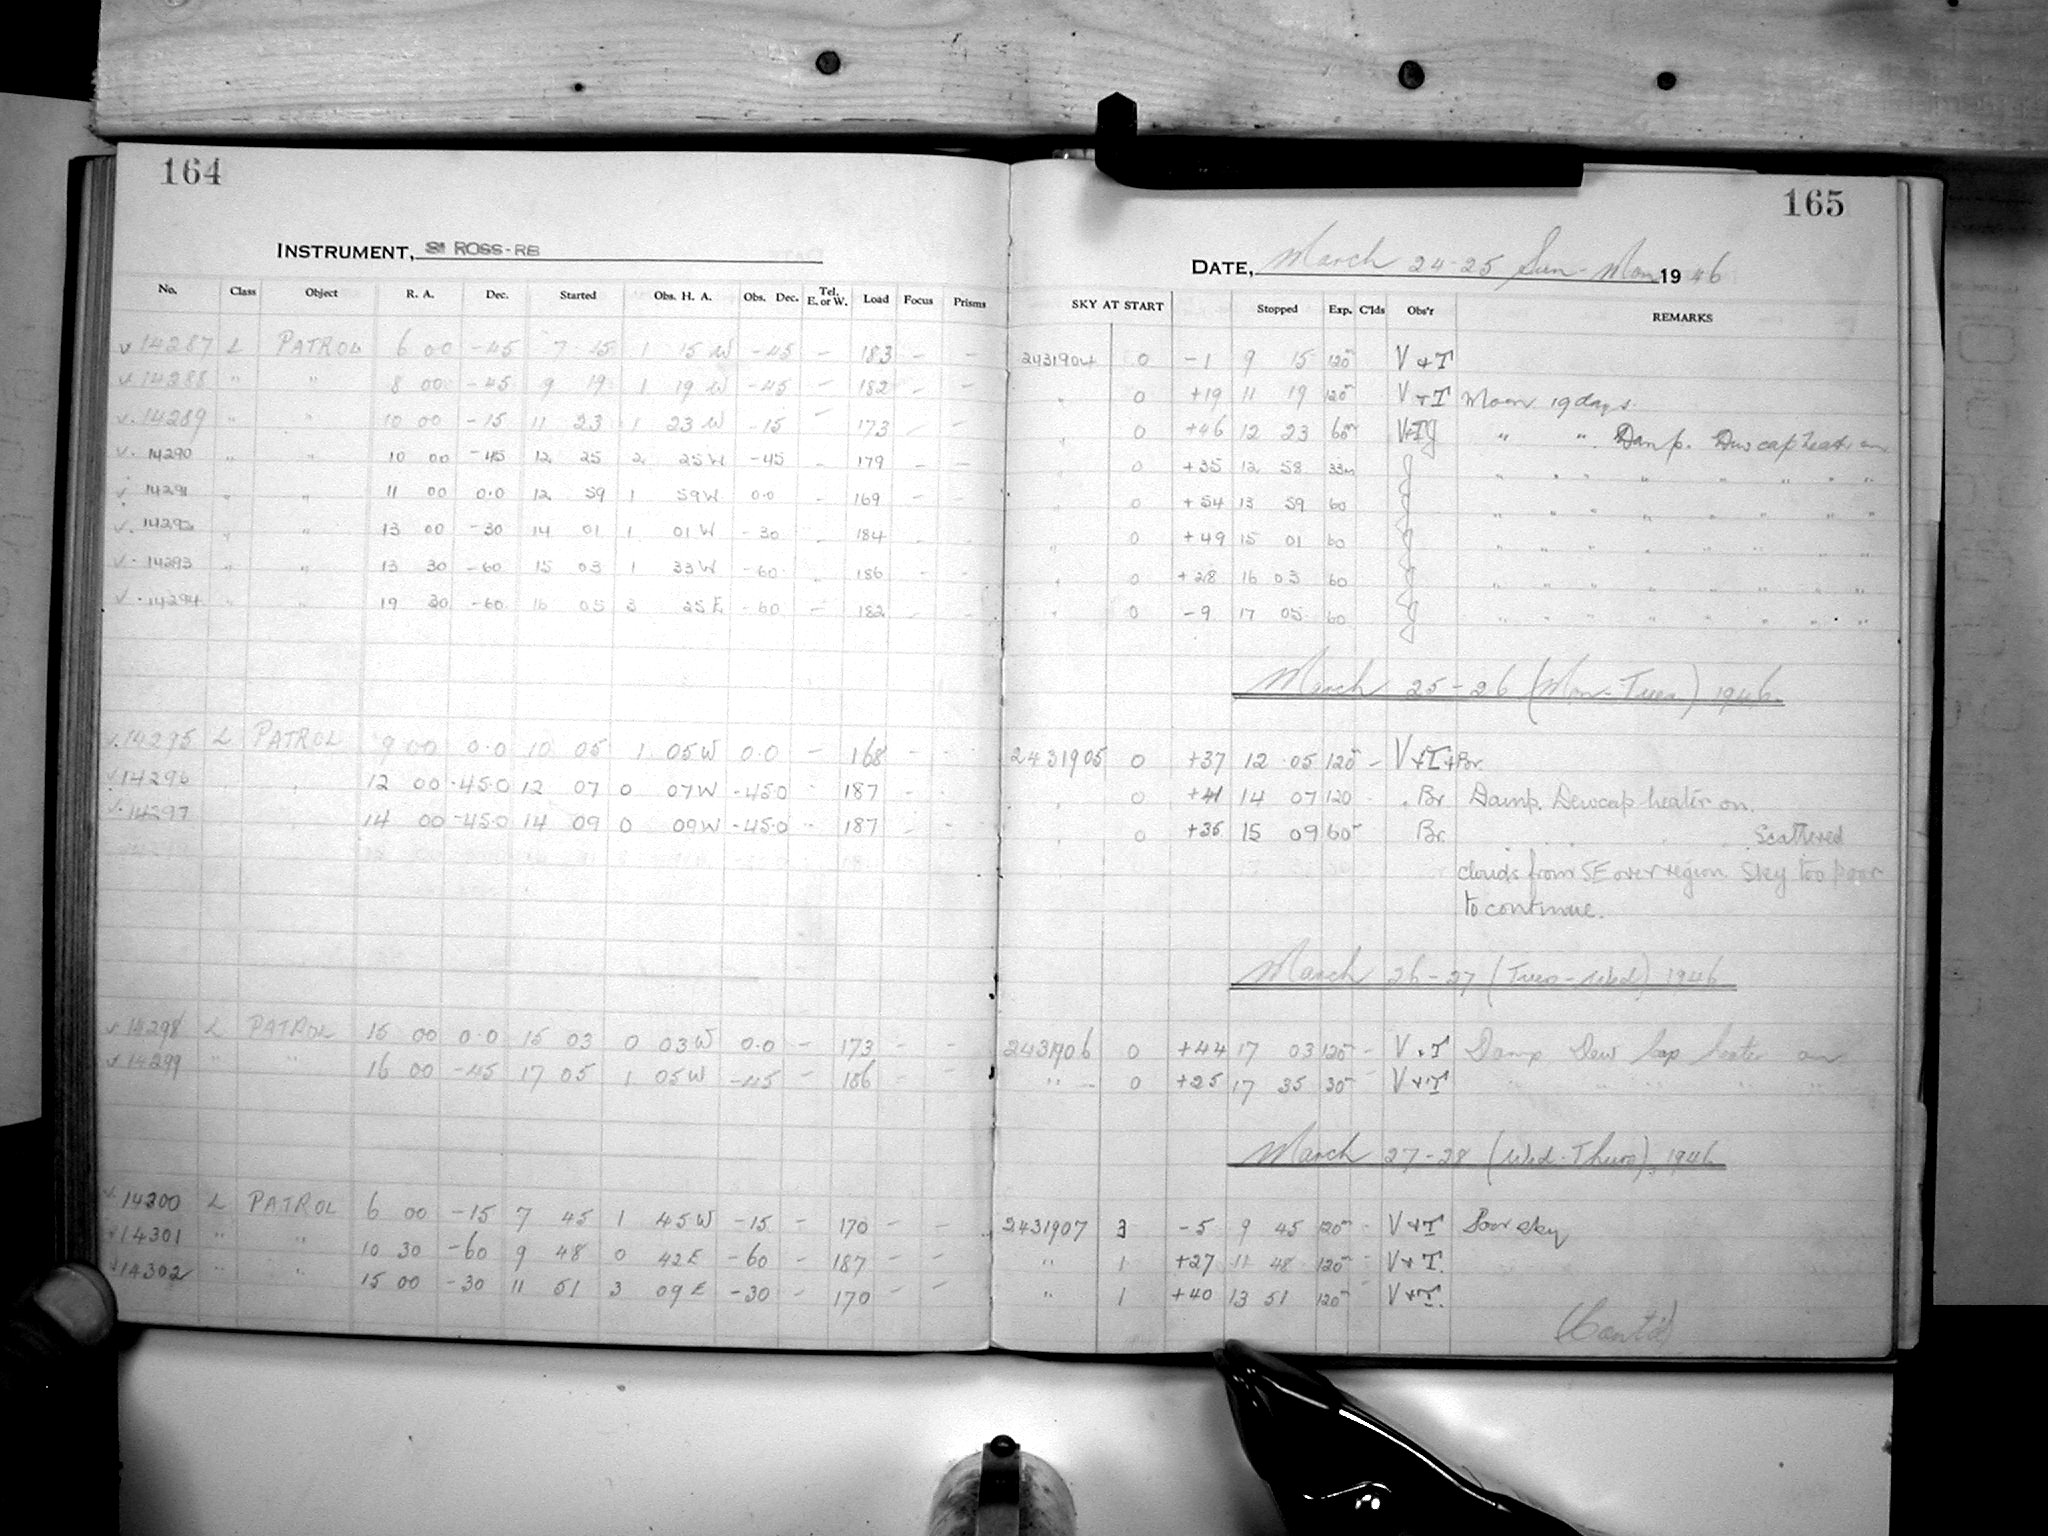 164
INSTRUMENT, ROSS-RB
No. Class Object R. A. Dec. Started Obs. H. A. Obs. Dec. Tel. E. or W. Load Focus Prisms
v 14287 L PATROL 6 00 -45 7 15 1 15 W -45 – 183 – –
v 14288 " " 8 00 -45 9 19 1 19 W -45 – 182 – –
v. 14289 " " 10 00 -15 11 23 1 23 W -15 – 173 – –
v. 14290 " " 10 00 -45 12 25 2 25 W -45 – 179 – –
v 14291 " " 11 00 0.0 12 59 1 59 W 0.0 – 169 – –
v. 14292 " " 13 00 -30 14 01 1 01 W -30 – 184 – –
v. 14293 " " 13 30 -60 15 03 1 33 W -60 – 186 – –
v. 14294 " " 19 30 -60 16 05 3 25 E -60 – 182 – –
v. 14295 L PATROL 9 00 0.0 10 05 1 05 W 0.0 – 168 – –
v. 14296 " " 12 00 -45.0 12 07 0 07 W -45.0 – 187 – –
v. 14297 " 14 00 -45.0 14 09 0 09 W -45.0 – 187 – –
v 14298 L PATROL 15 00 0.0 15 03 0 03 W 0.0 – 173 – –
v 14299 " " 16 00 -45 17 05 1 05 W -45 – 186 – –
v 14300 L PATROL 6 00 -15 7 45 1 45 W -15 – 170 – –
v 14301 " " 10 30 -60 9 48 0 42 E -60 – 187 – –
v 14302 " " 15 00 -30 11 51 3 09 E -30 – 170 – –
165
DATE, March 24-25 Sun-Mon 1946
SKY AT START Stopped Exp. C'lds Obs'r REMARKS
2431904 0 -1 9 15 120m V+T
" 0 +19 11 19 120m V+T Moon 19 days.
" 0 +46 12 23 60m V+TJ " " Damp. Dewcap heater on
" 0 +35 12 58 33m J " " " " " " " "
" 0 +54 13 59 60 J " " " " " " " "
" 0 +49 15 01 60 J " " " " " " " "
" 0 +28 16 03 60 J " " " " " " " "
" 0 -9 17 05 60 J " " " " " " " "
March 25-26 (Mon-Tues) 1946
2431905 0 +37 12 05 120m – V+T+Br.
" 0 +41 14 07 120 Br Damp. Dewcap heater on.
" 0 +35 15 09 60m Br. " " " " Scattered
clouds from SE over region. Sky too poor
to continue.
March 26-27 (Tues-Wed) 1946
2431906 0 +44 17 03 120m – V+T Damp Dew Cap heater on
" 0 +25 17 35 30m V+T " " " " "
March 27-28 (Wed-Thurs), 1946
2431907 3 -5 9 45 120m – V+T Poor sky
" 1 +27 11 48 120m – V+T.
" 1 +40 13 51 120m – V+T.
(Cont'd)